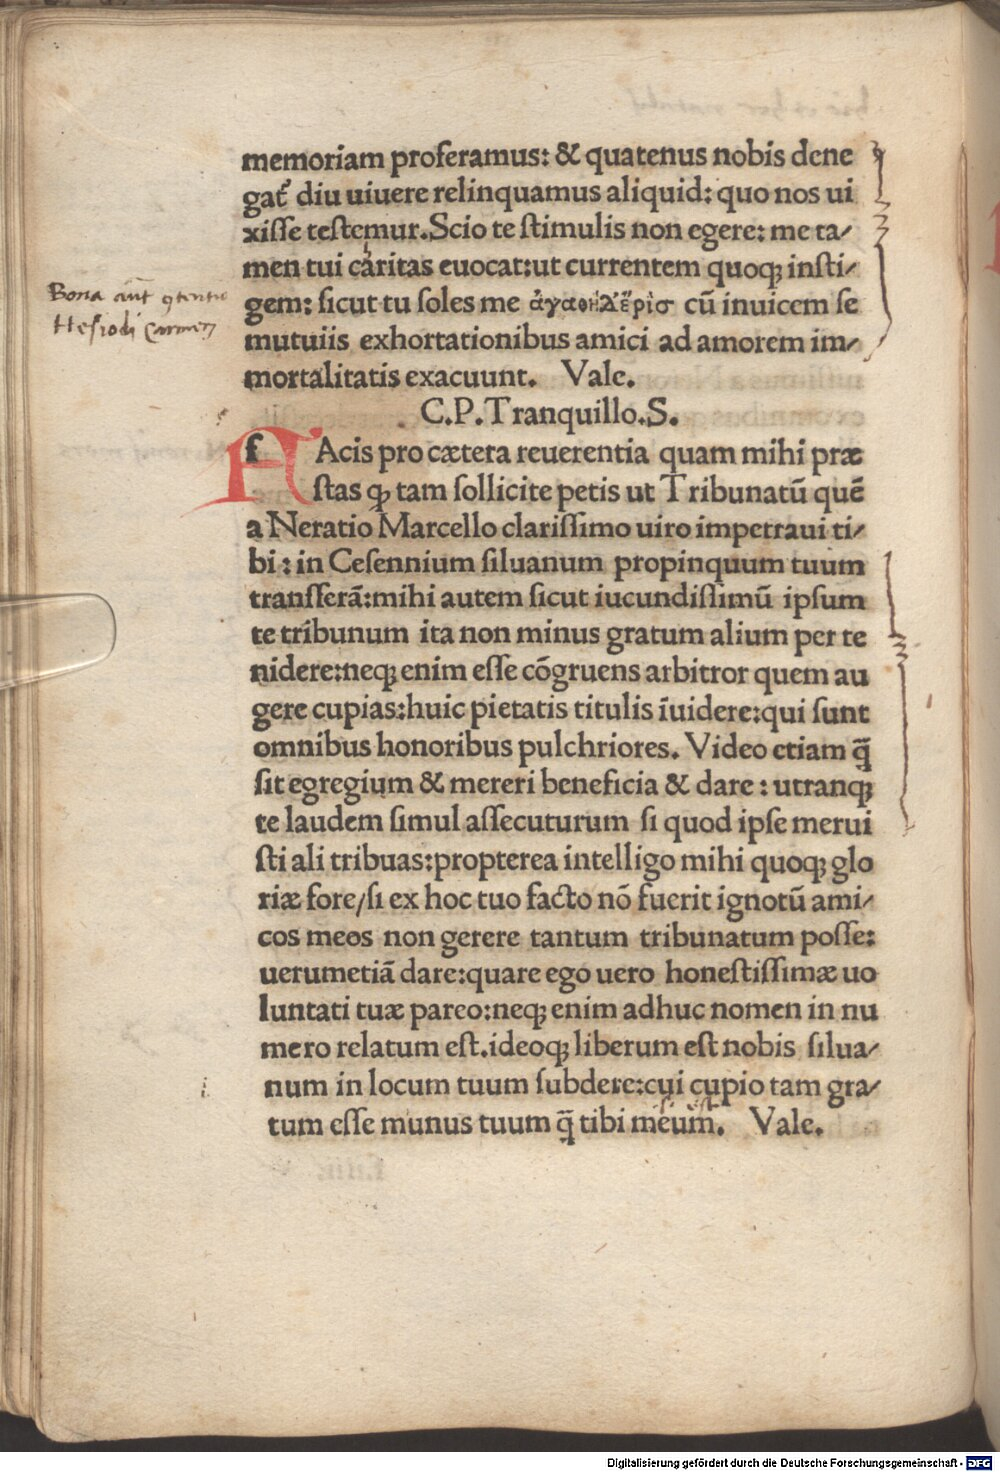 memoriam proferamus: & quatenus nobis dene
gat᷑ diu uiuere relinquamus aliquid: quo nos ui
xiſſe teſtemur. Scio te ſtimulis non egere: me ta/
men tui caritas euocat: ut currentem quoqꝫ inſti/
gem: ſicut tu ſoles me ἀγαθὴ Δἔρὶσ cū inuicem ſe
mutuiis exhortationibus amici ad amorem im/
mortalitatis exacuunt. Vale.
Bona aūt ꝯtentio
Hesiodi Carmen
C.P. Tranquillo. S.
f Acis pro cætera reuerentia quam mihi præ
ſtas qꝫ tam ſollicite petis ut Tribunatū quē
a Neratio Marcello clariſſimo uiro impetraui ti/
bi: in Ceſennium ſiluanum propinquum tuum
tranſferā: mihi autem ſicut iucundiſſimū ipſum
te tribunum ita non minus gratum alium per te
nidere: neqꝫ enim eſſe cōgruens arbitror quem au
gere cupias: huic pietatis titulis īuidere: qui ſunt
omnibus honoribus pulchriores. Video etiam q̄
ſit egregium & mereri beneficia & dare: utranqꝫ
te laudem ſimul aſſecuturum ſi quod ipſe merui
ſti ali tribuas: propterea intelligo mihi quoqꝫ glo
riæ fore/ſi ex hoc tuo facto nō fuerit ignotū ami/
cos meos non gerere tantum tribunatum poſſe:
uerumetiā dare: quare ego uero honeſtiſſimæ uo
luntati tuæ pareo: neqꝫ enim adhuc nomen in nu
mero relatum eſt. ideoqꝫ liberum eſt nobis ſilua/
num in locum tuum ſubdere: cui cupio tam gra/
tum eſſe munus tuum q̄ tibi meum. Vale.
Digitalisierung gefördert durch die Deutsche Forschungsgemeinschaft - DFG